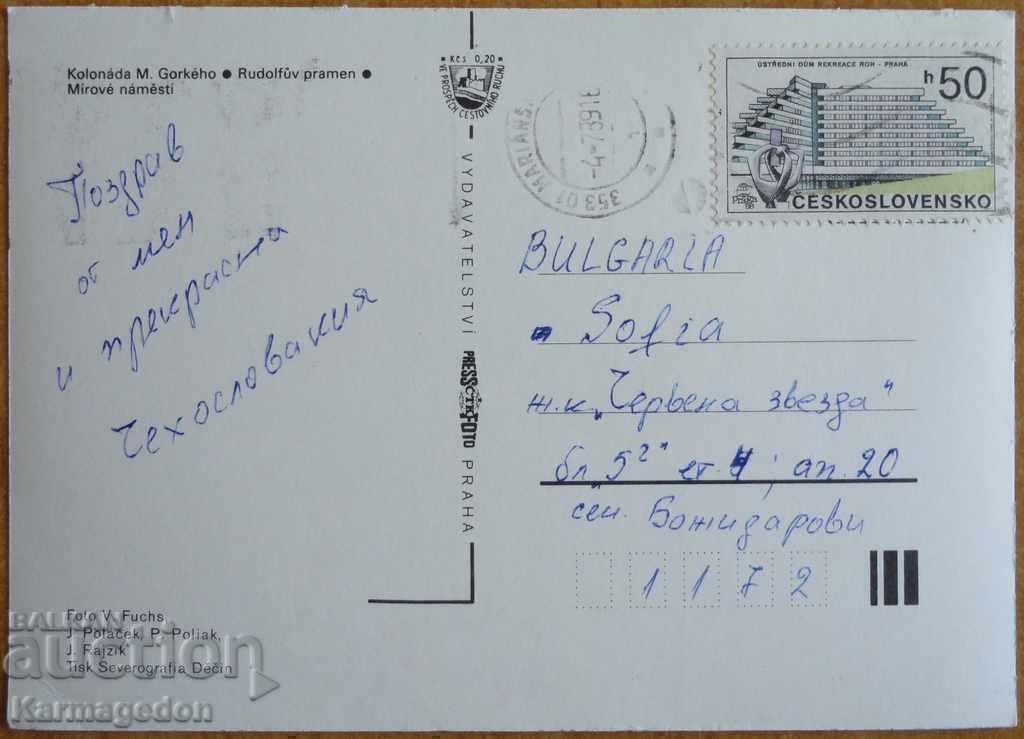 Kolonáda M. Gorkého ● Rudolfův pramen ●
Mírové náměstí
Поздрав
от мен
и прекрасна
Чехословакия
Foto V. Fuchs
J. Poláček, P. Poliak,
J. Rajzík
Tisk Severografia Děčín
Kčs 0,20
VE PROSPĚCH CESTOVNÍHO RUCHU
VYDAVATELSTVÍ PRESSFOTO PRAHA
ČTK
353 01 MARIÁNS
ÚSTŘEDNÍ DŮM REKREACE ROH - PRAHA
h 50
PRAGA 88
ČESKOSLOVENSKO
BULGARIA
Sofia
ж.к. „Червена звезда"
бл. „5²" ет. 4; ап. 20
сем. Божидарови
1172
BALKAN
auction
Karmagedon